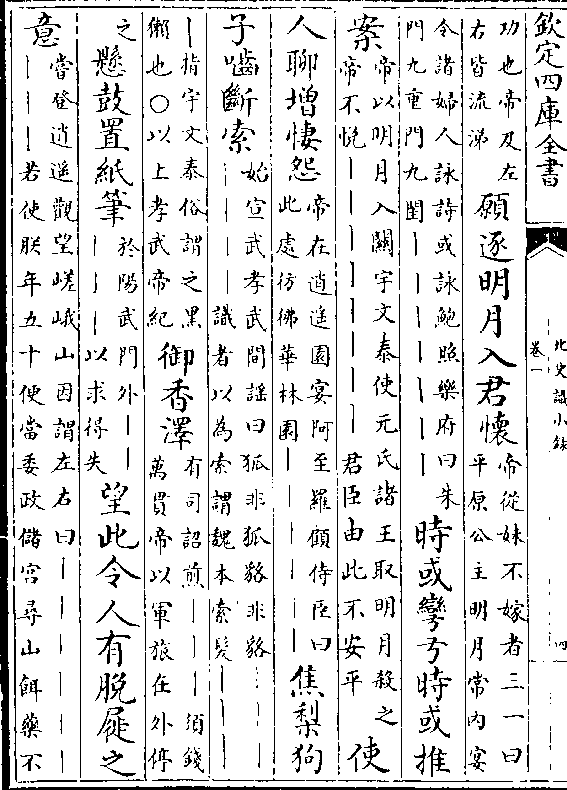 欽定四庫全書
北史識小錄
卷一
四
功也帝及左
右皆流涕
願逐明月入君懷
帝從妹不嫁者三一曰
平原公主明月常內宴
令諸婦人詠詩或詠鮑照樂府曰朱
門九重門九閨｜｜｜｜｜｜｜
時或彎弓時或推
案
帝以明月入關宇文泰使元氏諸王取明月殺之
帝不悅｜｜｜｜｜｜｜｜君臣由此不安平
使
人聊增悽怨
帝在逍遥園宴阿至羅顧侍臣曰
此處彷彿華林園｜｜｜｜｜｜
焦梨狗
子嚙斷索
始宣武孝武間謠曰狐非狐貉非貉｜｜｜
｜｜｜｜識者以為索謂魏本索髮｜｜｜
｜指宇文泰俗謂之黑
獺也○以上孝武帝紀
御香澤
有司詔煎｜｜｜須錢
萬貫帝以軍旅在外停
之
懸鼓置紙筆
於陽武門外｜｜
｜｜｜以求得失
望此令人有脫屣之
意
嘗登逍遥觀望嵯峨山因謂左右曰｜｜｜｜｜
｜｜｜｜若使朕年五十便當委政儲宮尋山餌藥不